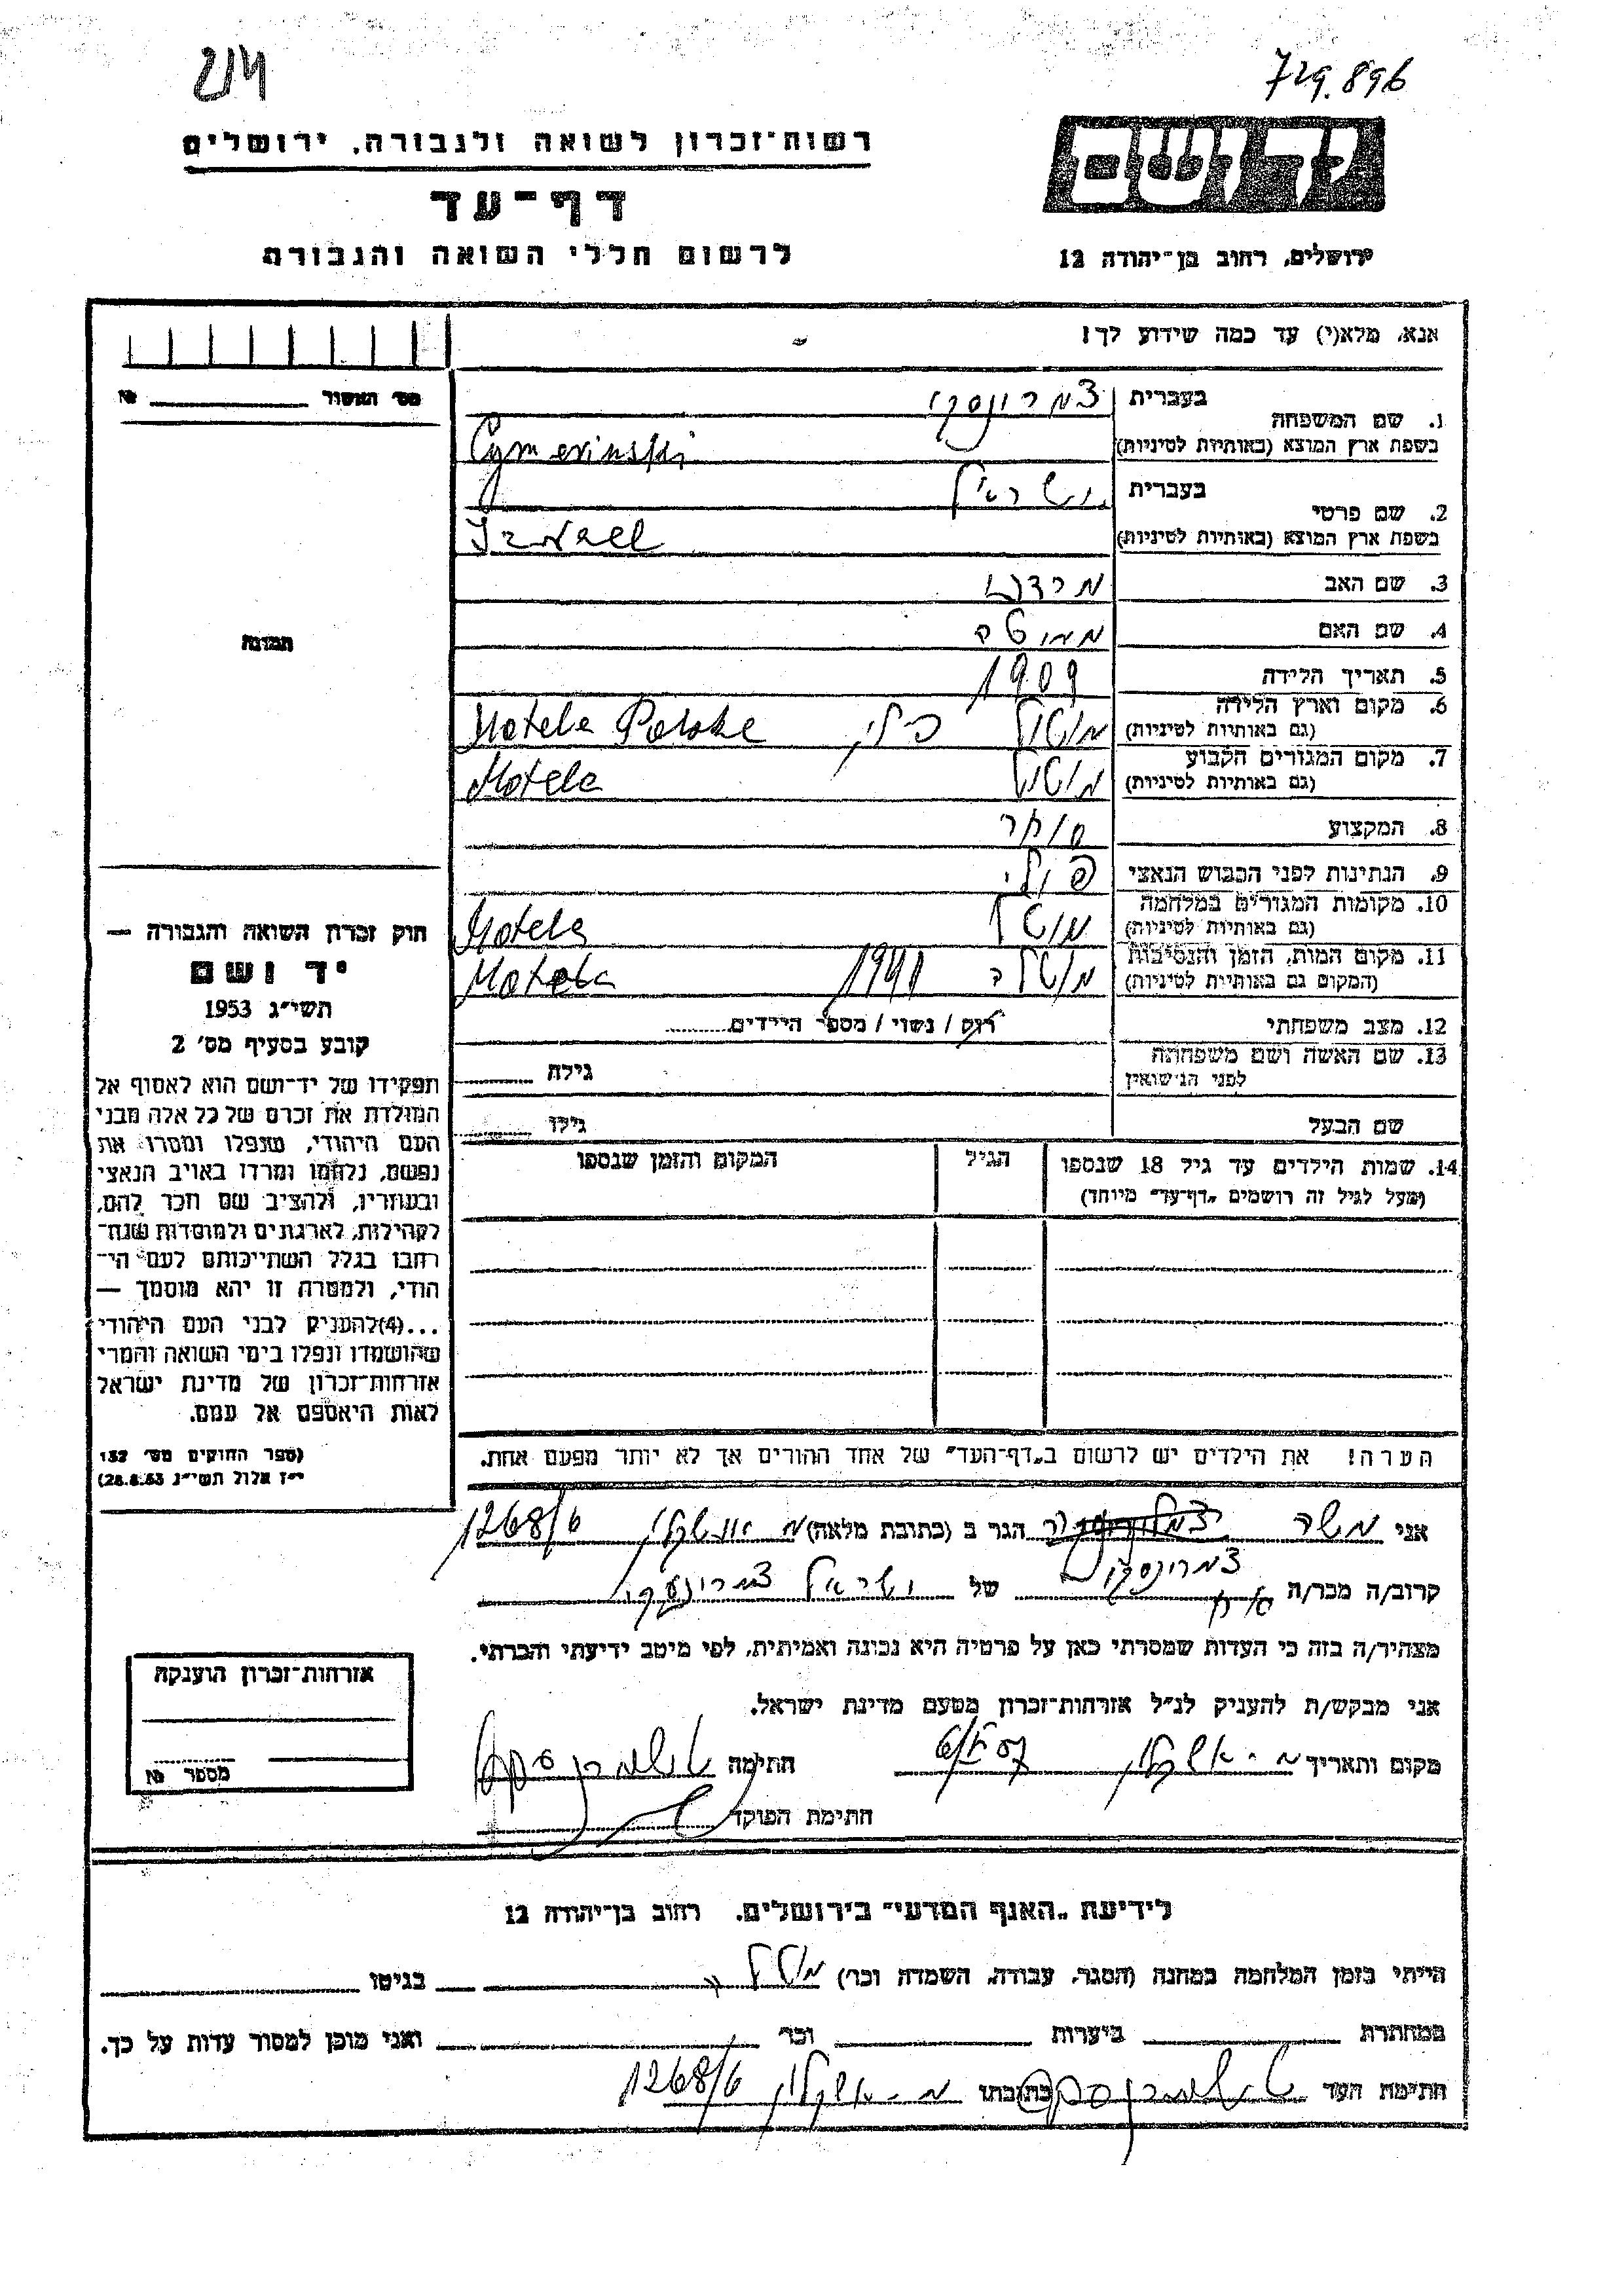 214
729.896
רשות־זכרון לשואה ולגבורה, ירושלים
דף־עד
לרשום חללי השואה והגבורה
יד ושם
ירושלים, רחוב בן־יהודה 12
אנא, מלא(י) עד כמה שידוע לך!
מס' האשור №
1. שם המשפחה
בעברית צמרינסקי
בשפת ארץ המוצא (באותיות לטיניות) Cymerinski
2. שם פרטי
בעברית ישראל
בשפת ארץ המוצא (באותיות לטיניות) Israel
3. שם האב מרדכי
4. שם האם
5. תאריך הלידה 1909
6. מקום וארץ הלידה
(גם באותיות לטיניות) מוטול Motela Polske
7. מקום המגורים הקבוע
(גם באותיות לטיניות) מוטול Motela
8. המקצוע סוחר
9. הנתינות לפני הכבוש הנאצי פולני
10. מקומות המגורים במלחמה
(גם באותיות לטיניות) מוטל Motela
11. מקום המות, הזמן והנסיבות
(המקום גם באותיות לטיניות) מוטלה 1941 Motela
12. מצב משפחתי רוק / נשוי / מספר הילדים
13. שם האשה ושם משפחתה
לפני הנישואין גילה
שם הבעל גילו
14. שמות הילדים עד גיל 18 שנספו הגיל המקום והזמן שנספו
(מעל לגיל זה רושמים „דף־עד" מיוחד)
הערה! את הילדים יש לרשום ב„דף־העד" של אחד ההורים אך לא יותר מפעם אחת.
תמונה
חוק זכרון השואה והגבורה —
יד ושם
תשי"ג 1953
קובע בסעיף מס' 2
תפקידו של יד־ושם הוא לאסוף אל
המולדת את זכרם של כל אלה מבני
העם היהודי, שנפלו ומסרו את
נפשם, נלחמו ומרדו באויב הנאצי
ובעוזריו, ולהציב שם וזכר להם,
לקהילות, לארגונים ולמוסדות שנח־
רבו בגלל השתייכותם לעם הי־
הודי, ולמטרה זו יהא מוסמך —
...(4)להעניק לבני העם היהודי
שהושמדו ונפלו בימי השואה והמרי
אזרחות־זכרון של מדינת ישראל
לאות היאספם אל עמם.
(ספר החוקים מס' 132
י"ז אלול תשי"ג 28.8.53)
אני משה הגר ב (כתובת מלאה) מ אשקלון 1268/6
צמרינסקי
קרוב/ה מכר/ה אח של ישראל צמרינסקי
מצהיר/ה בזה כי העדות שמסרתי כאן על פרטיה היא נכונה ואמיתית, לפי מיטב ידיעתי והכרתי.
אני מבקש/ת להעניק לנ"ל אזרחות־זכרון מטעם מדינת ישראל.
מקום ותאריך מ. אשקלון חתימה
חתימת הפוקד
אזרחות־זכרון הוענקה
מספר №
לידיעת „האגף המדעי" בירושלים. רחוב בן־יהודה 12
הייתי בזמן המלחמה במחנה (הסגר, עבודה, השמדה וכו') בגיטו
במחתרת ביערות וכו' ואני מוכן למסור עדות על כך.
חתימת העד כתובתו מ. אשקלון 1268/6